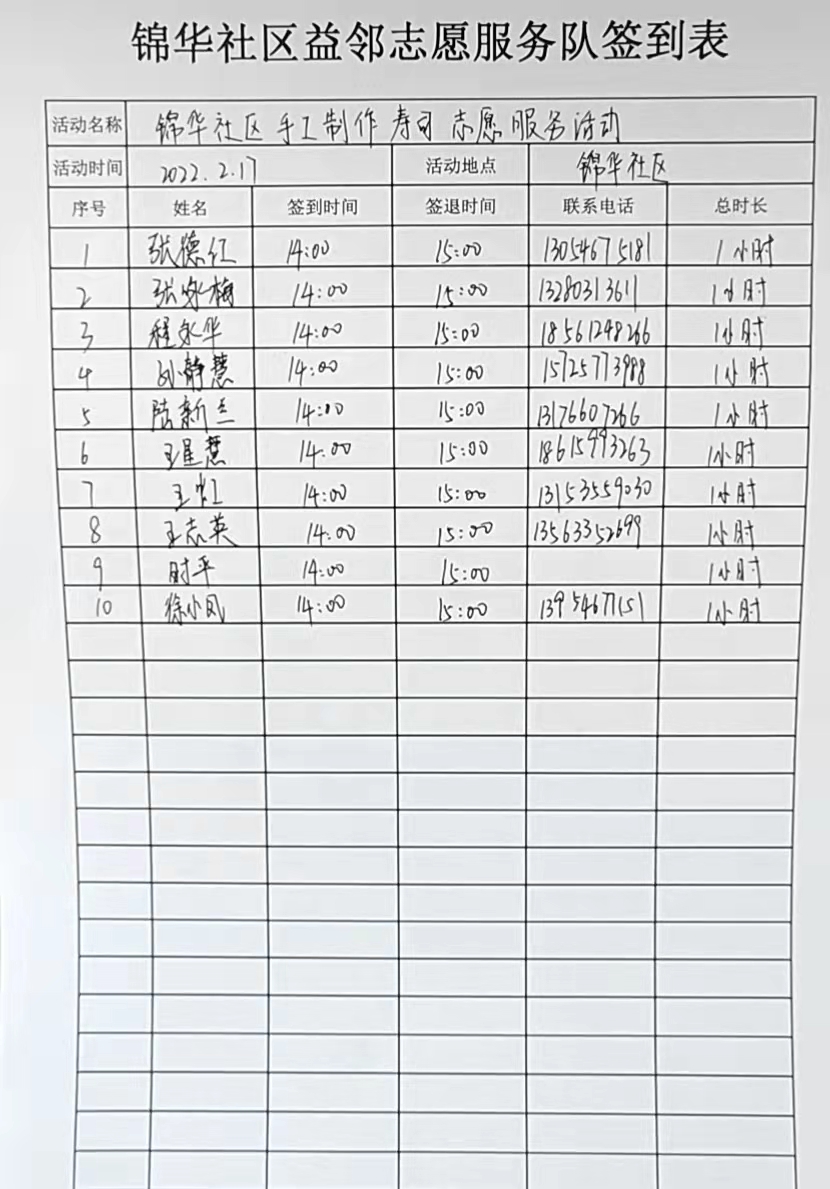 锦华社区益邻志愿服务队签到表
活动名称 锦华社区手工制作寿司志愿服务活动
活动时间 2022.2.17 活动地点 锦华社区
序号 姓名 签到时间 签退时间 联系电话 总时长
1 张德红 14:00 15:00 13054675181 1小时
2 张永梅 14:00 15:00 13280313611 1小时
3 程永华 14:00 15:00 18561248266 1小时
4 孙静慧 14:00 15:00 15725773988 1小时
5 陆新兰 14:00 15:00 13176607266 1小时
6 王星慧 14:00 15:00 18615993263 1小时
7 王红 14:00 15:00 13153559030 1小时
8 王志英 14:00 15:00 13563352699 1小时
9 时平 14:00 15:00 1小时
10 徐小凤 14:00 15:00 13954677151 1小时